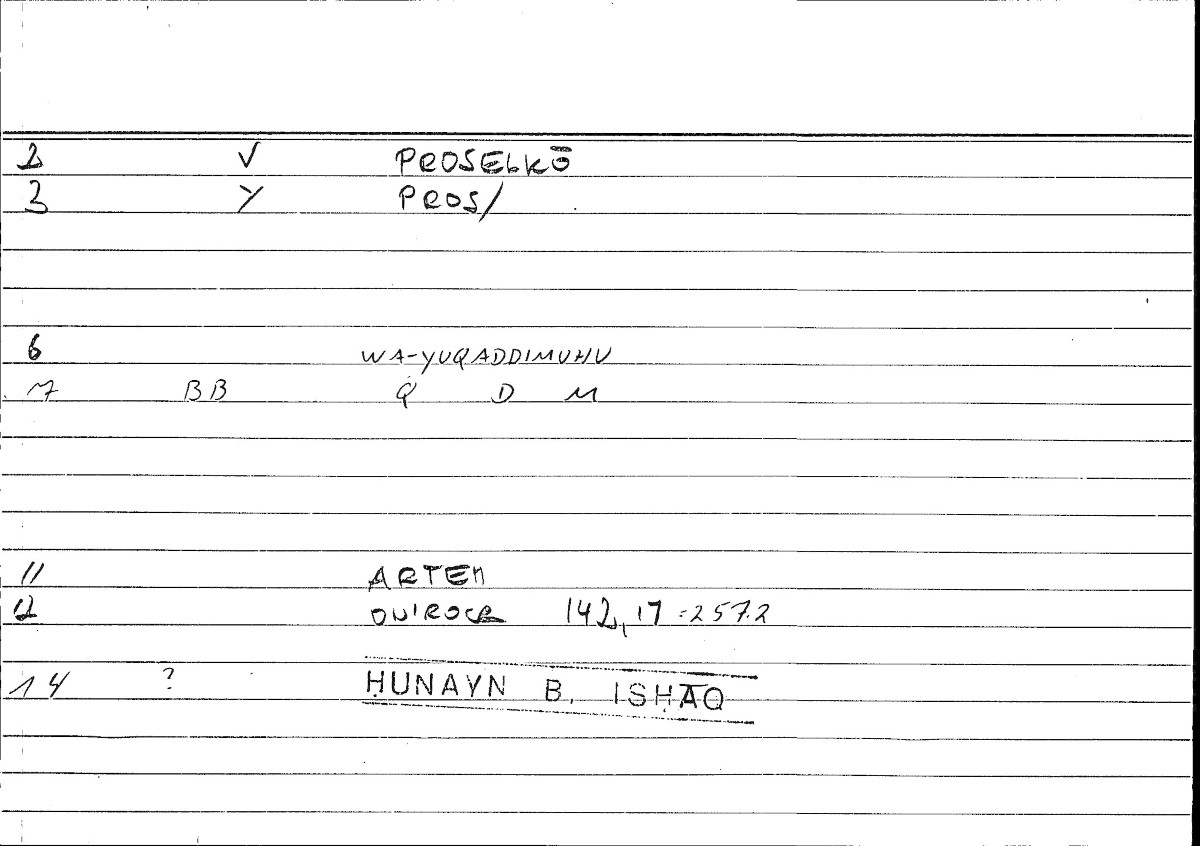 2 V PROSELKŌ
3 Y PROS/
6 WA-YUQADDIMUHU
7 BB Q D M
11 ARTEM
12 ONIROCR 142,17 = 257.2
14 ? ḤUNAYN B. ISḤĀQ